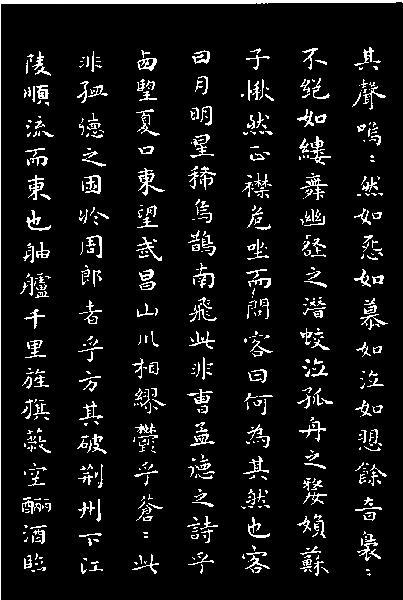 其聲嗚〻然如怨如慕如泣如愬餘音裊〻
不絕如縷舞幽壑之潛蛟泣孤舟之嫠媍蘇
子愀然正襟危坐而問客曰何為其然也客
曰月明星稀烏鵲南飛此非曹孟德之詩乎
西望夏口東望武昌山川相繆鬱乎蒼〻此
非孟德之困於周郎者乎方其破荊州下江
陵順流而東也舳艫千里旌旗蔽空釃酒臨